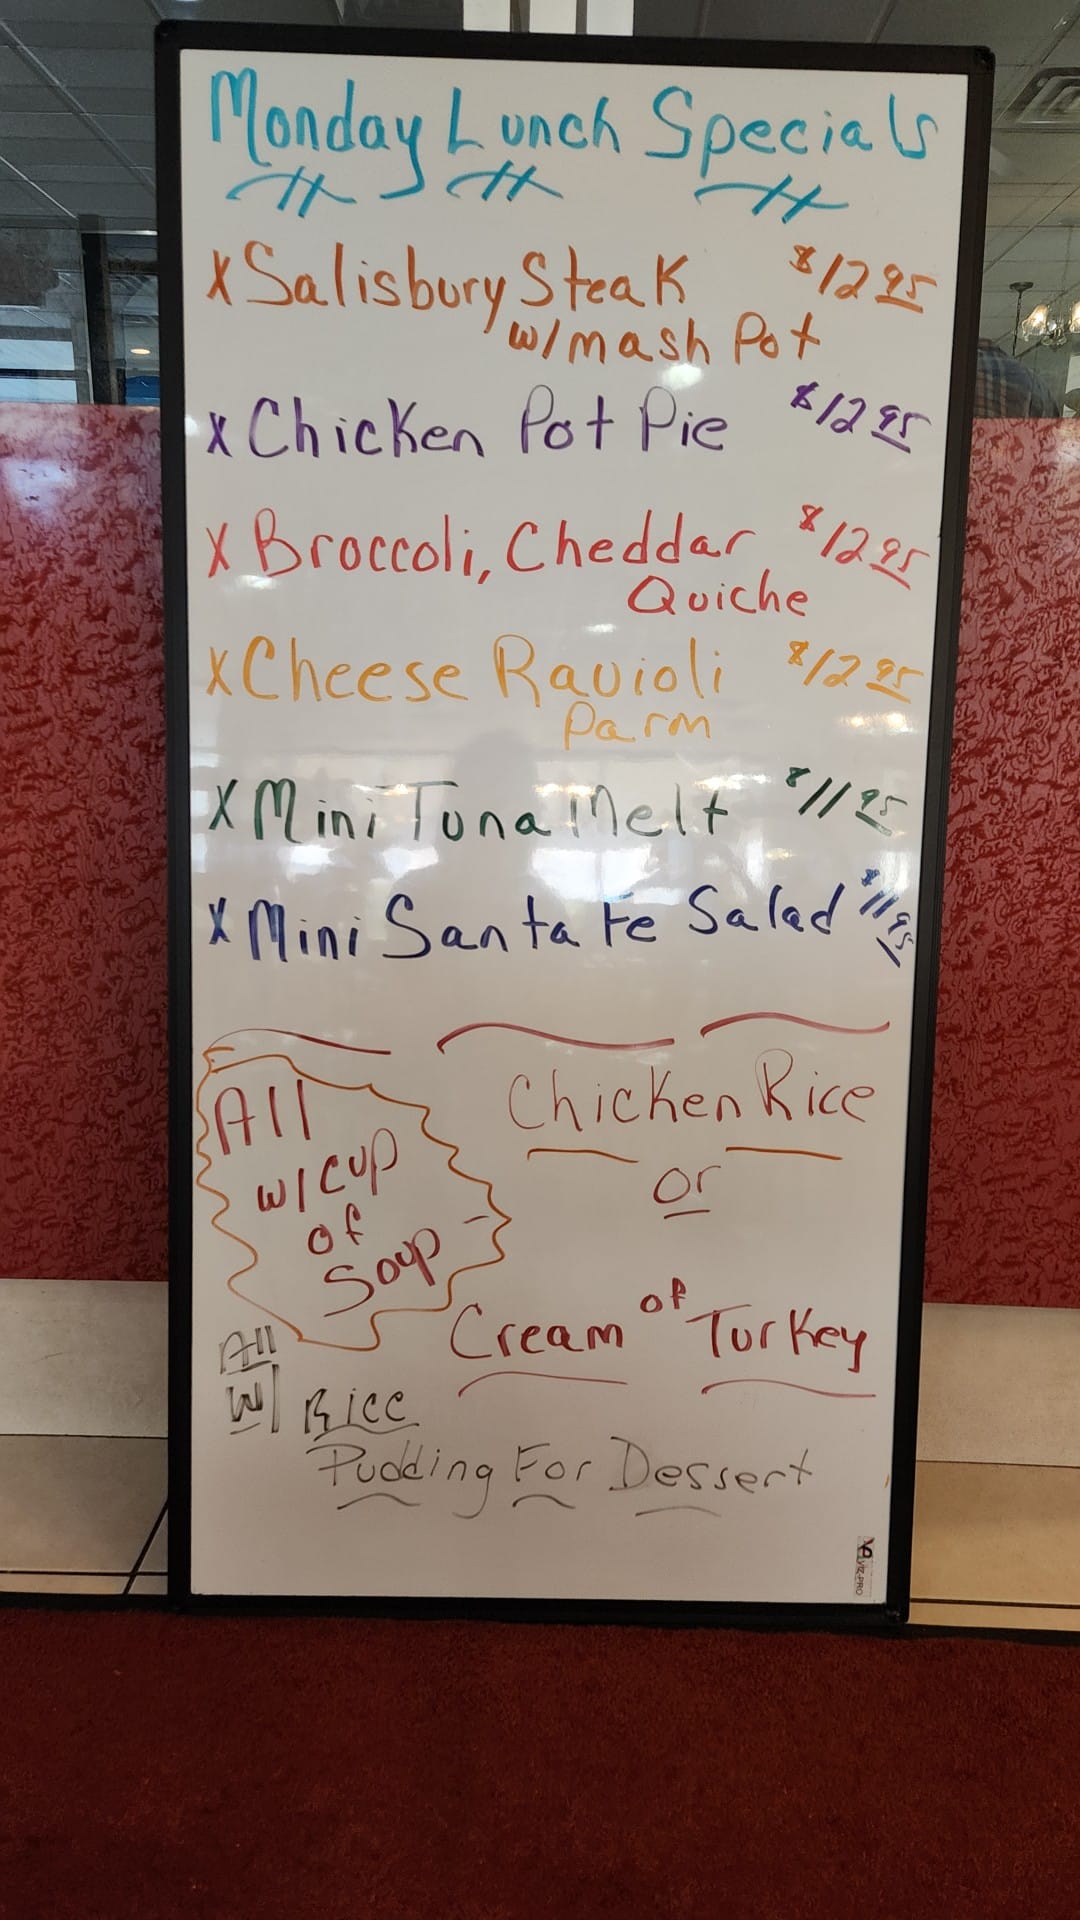 Monday Lunch Specials
x Salisbury Steak $12 95
w/ mash Pot
x Chicken Pot Pie $12 95
x Broccoli, Cheddar $12 95
Quiche
x Cheese Ravioli $12 95
Parm
x Mini Tuna Melt $11 95
x Mini Santa Fe Salad $11 95
All
w/ cup
of
Soup
Chicken Rice
or
Cream of Turkey
All
w/ Rice
Pudding For Dessert
VIZ-PRO